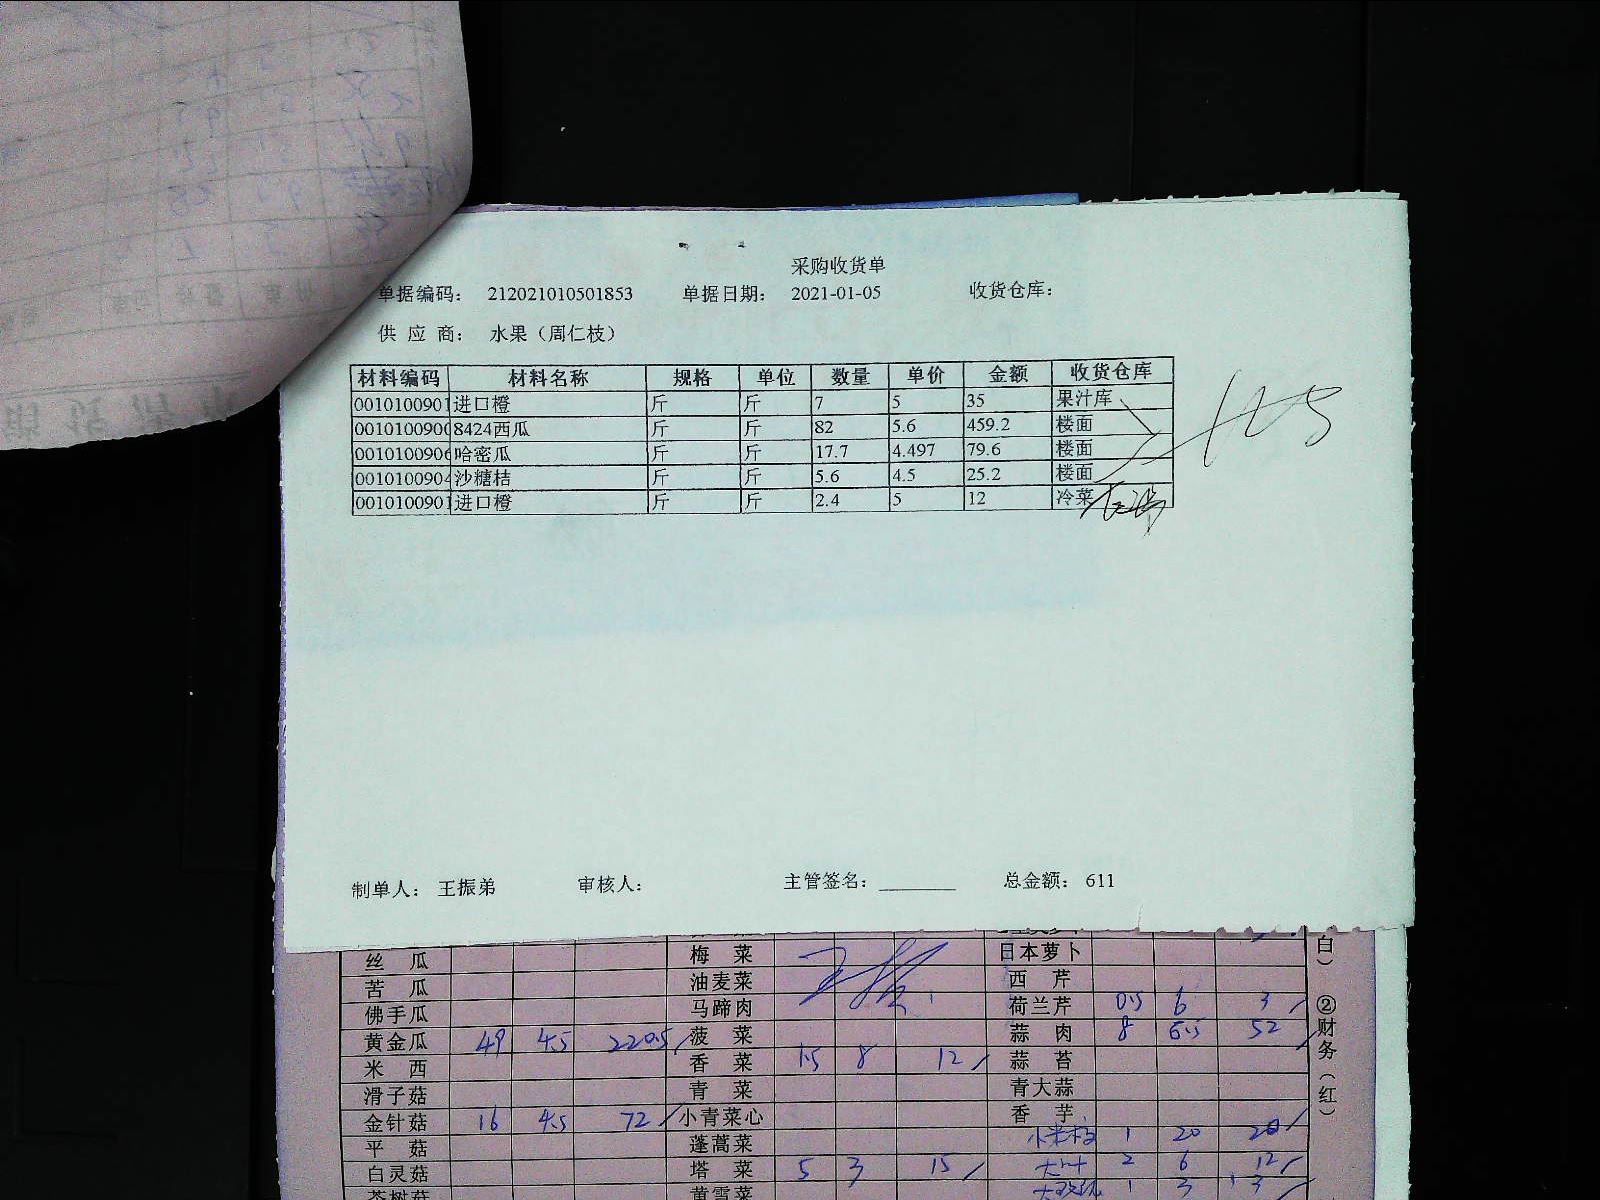 采购收货单
单据编码： 212021010501853 单据日期： 2021-01-05 收货仓库：
供 应 商： 水果（周仁枝）
材料编码 材料名称 规格 单位 数量 单价 金额 收货仓库
0010100901 进口橙 斤 斤 7 5 35 果汁库
0010100900 8424西瓜 斤 斤 82 5.6 459.2 楼面
0010100906 哈密瓜 斤 斤 17.7 4.497 79.6 楼面
0010100904 沙糖桔 斤 斤 5.6 4.5 25.2 楼面
0010100901 进口橙 斤 斤 2.4 5 12 冷菜
制单人： 王振弟 审核人： 主管签名： 总金额： 611
丝 瓜 梅 菜 日本萝卜
苦 瓜 油麦菜 西 芹
佛手瓜 马蹄肉 荷兰芹 0.5 6 3
黄金瓜 49 4.5 220.5 菠 菜 蒜 肉 8 6.5 52
米 西 香 菜 1.5 8 12 蒜 苔
滑子菇 青 菜 青大蒜
金针菇 16 4.5 72 小青菜心 香 芋
平 菇 蓬蒿菜 1 20 20
白灵菇 塔 菜 5 3 15 大叶 2 6 12
茶树菇 黄雪菜 1 3 3
白）
②财务（红）